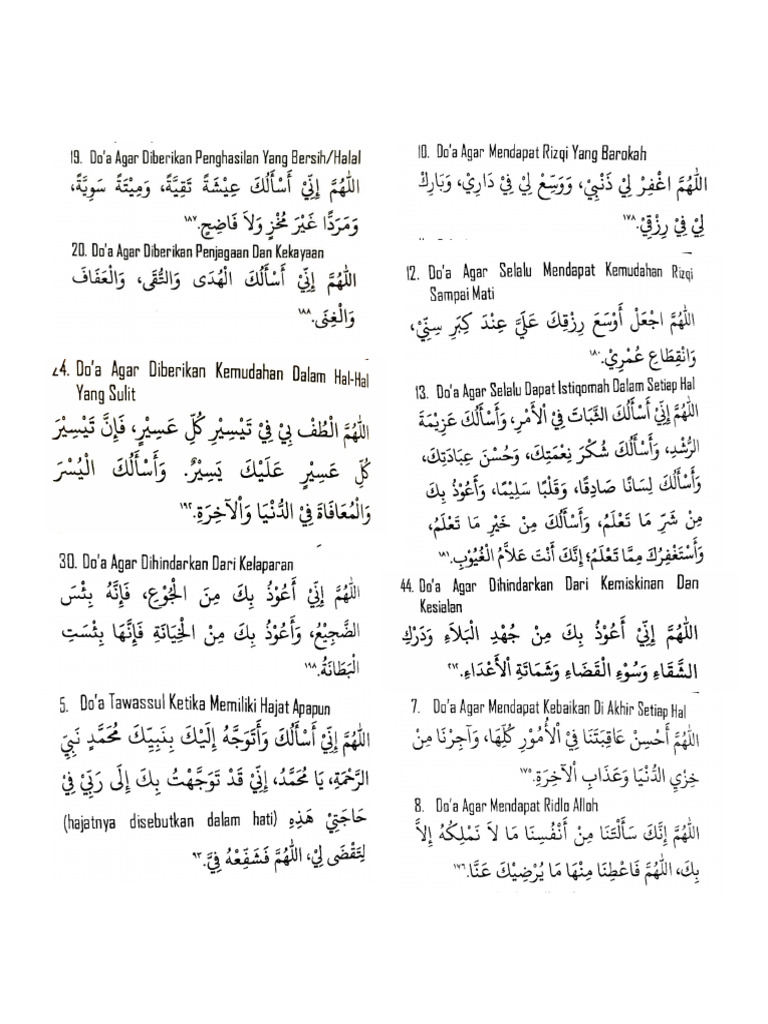 19. Do'a Agar Diberikan Penghasilan Yang Bersih/Halal
اَللّٰهُمَّ إِنِّيْ أَسْأَلُكَ عِيْشَةً تَقِيَّةً، وَمِيْتَةً سَوِيَّةً،
وَمَرَدًّا غَيْرَ مُخْزٍ وَلاَ فَاضِحٍ.١٨٧
20. Do'a Agar Diberikan Penjagaan Dan Kekayaan
اَللّٰهُمَّ إِنِّيْ أَسْأَلُكَ الْهُدَى وَالتُّقَى، وَالْعَفَافَ
وَالْغِنَى.١٨٨
24. Do'a Agar Diberikan Kemudahan Dalam Hal-Hal
Yang Sulit
اَللّٰهُمَّ الْطُفْ بِيْ فِيْ تَيْسِيْرِ كُلِّ عَسِيْرٍ، فَإِنَّ تَيْسِيْرَ
كُلِّ عَسِيْرٍ عَلَيْكَ يَسِيْرٌ. وَأَسْأَلُكَ الْيُسْرَ
وَالْمُعَافَاةَ فِيْ الدُّنْيَا وَاْلآخِرَةِ.١٩٢
30. Do'a Agar Dihindarkan Dari Kelaparan
اَللّٰهُمَّ إِنِّيْ أَعُوْذُ بِكَ مِنَ الْجُوْعِ، فَإِنَّهُ بِئْسَ
الضَّجِيْعُ، وَأَعُوْذُ بِكَ مِنْ الْخِيَانَةِ فَإِنَّهَا بِئْسَتِ
الْبَطَانَةُ.١٩٨
5. Do'a Tawassul Ketika Memiliki Hajat Apapun
اَللّٰهُمَّ إِنِّيْ أَسْأَلُكَ وَأَتَوَجَّهُ إِلَيْكَ بِنَبِيِّكَ مُحَمَّدٍ نَبِيِّ
الرَّحْمَةِ، يَا مُحَمَّدُ، إِنِّيْ قَدْ تَوَجَّهْتُ بِكَ إِلَى رَبِّيْ فِيْ
حَاجَتِيْ هَذِهِ (hajatnya disebutkan dalam hati)
لِتُقْضَى لِيْ، اَللّٰهُمَّ فَشَفِّعْهُ فِيَّ.٩٣
10. Do'a Agar Mendapat Rizqi Yang Barokah
اَللّٰهُمَّ اغْفِرْ لِيْ ذَنْبِيْ، وَوَسِّعْ لِيْ فِيْ دَارِيْ، وَبَارِكْ
لِيْ فِيْ رِزْقِيْ.١٧٨
12. Do'a Agar Selalu Mendapat Kemudahan Rizqi
Sampai Mati
اَللّٰهُمَّ اجْعَلْ أَوْسَعَ رِزْقِكَ عَلَيَّ عِنْدَ كِبَرِ سِنِّيْ،
وَانْقِطَاعِ عُمْرِيْ.١٨٠
13. Do'a Agar Selalu Dapat Istiqomah Dalam Setiap Hal
اَللّٰهُمَّ إِنِّيْ أَسْأَلُكَ الثَّبَاتَ فِيْ اْلأَمْرِ، وَأَسْأَلُكَ عَزِيْمَةَ
الرُّشْدِ، وَأَسْأَلُكَ شُكْرَ نِعْمَتِكَ، وَحُسْنَ عِبَادَتِكَ،
وَأَسْأَلُكَ لِسَانًا صَادِقًا، وَقَلْبًا سَلِيْمًا، وَأَعُوْذُ بِكَ
مِنْ شَرِّ مَا تَعْلَمُ، وَأَسْأَلُكَ مِنْ خَيْرِ مَا تَعْلَمُ،
وَأَسْتَغْفِرُكَ مِمَّا تَعْلَمُ؛ إِنَّكَ أَنْتَ عَلاَّمُ الْغُيُوْبِ.١٨١
44. Do'a Agar Dihindarkan Dari Kemiskinan Dan
Kesialan
اَللّٰهُمَّ إِنِّيْ أَعُوْذُ بِكَ مِنْ جُهْدِ الْبَلاَءِ وَدَرْكِ
الشَّقَاءِ وَسُوْءِ الْقَضَاءِ وَشَمَاتَةِ اْلأَعْدَاءِ.٢١٢
7. Do'a Agar Mendapat Kebaikan Di Akhir Setiap Hal
اَللّٰهُمَّ أَحْسِنْ عَاقِبَتَنَا فِيْ اْلأُمُوْرِ كُلِّهَا، وَآجِرْنَا مِنْ
خِزْيِ الدُّنْيَا وَعَذَابِ اْلآخِرَةِ.١٧٥
8. Do'a Agar Mendapat Ridlo Alloh
اَللّٰهُمَّ إِنَّكَ سَأَلْتَنَا مِنْ أَنْفُسِنَا مَا لاَ نَمْلِكُهُ إِلاَّ
بِكَ، اَللّٰهُمَّ فَاعْطِنَا مِنْهَا مَا يُرْضِيْكَ عَنَّا.١٧٦